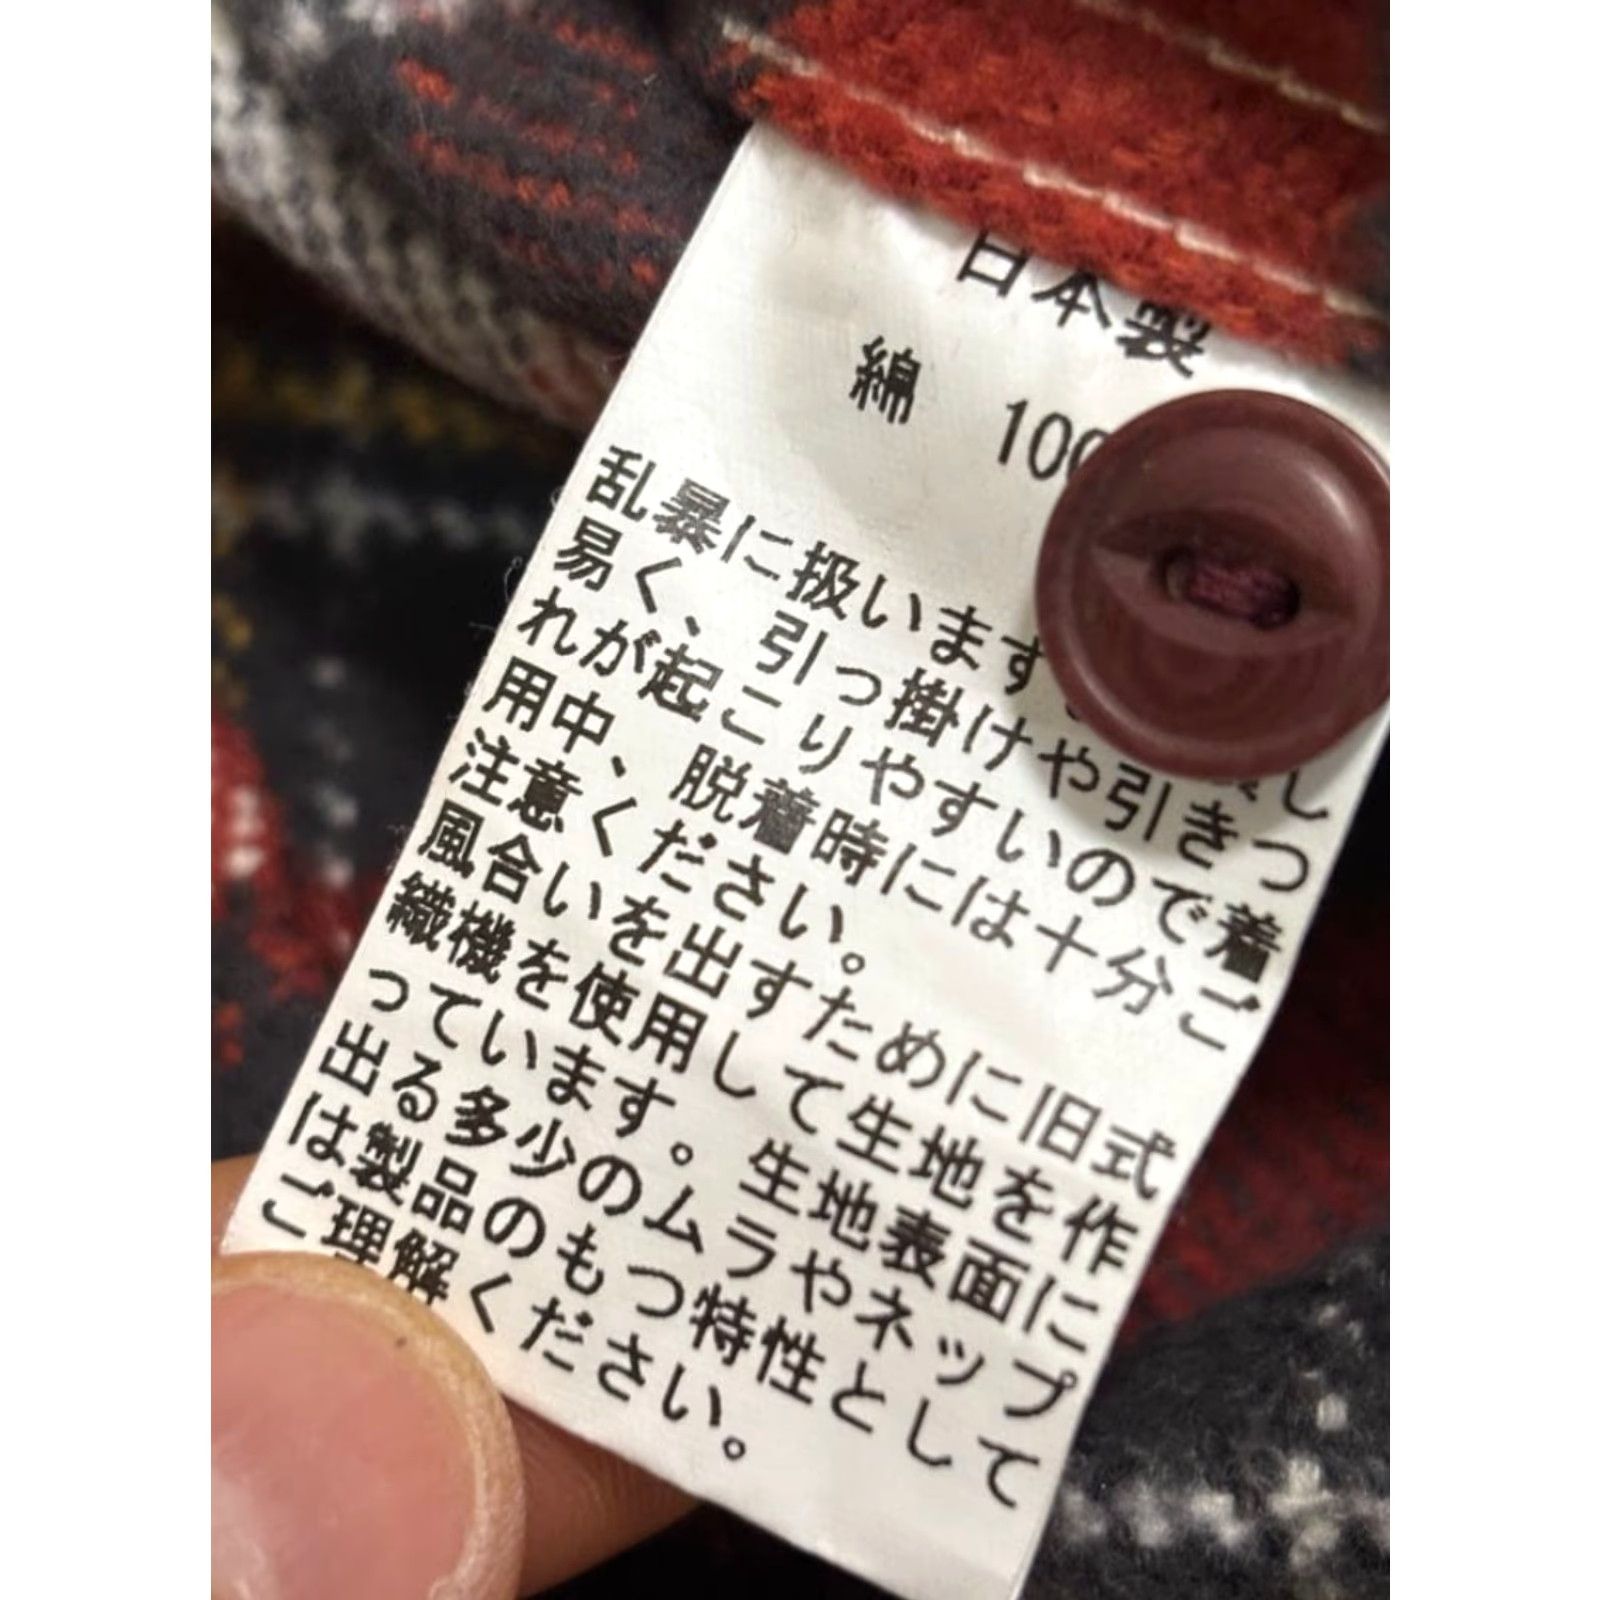 日本製
綿 100
乱暴に扱います し
易く、引っ掛けや引きつ
れが起こりやすいので着
用中、脱着時には十分ご
注意ください。
風合いを出すために旧式
織機を使用して生地を作
っています。生地表面に
出る多少のムラやネップ
は製品のもつ特性として
ご理解ください。